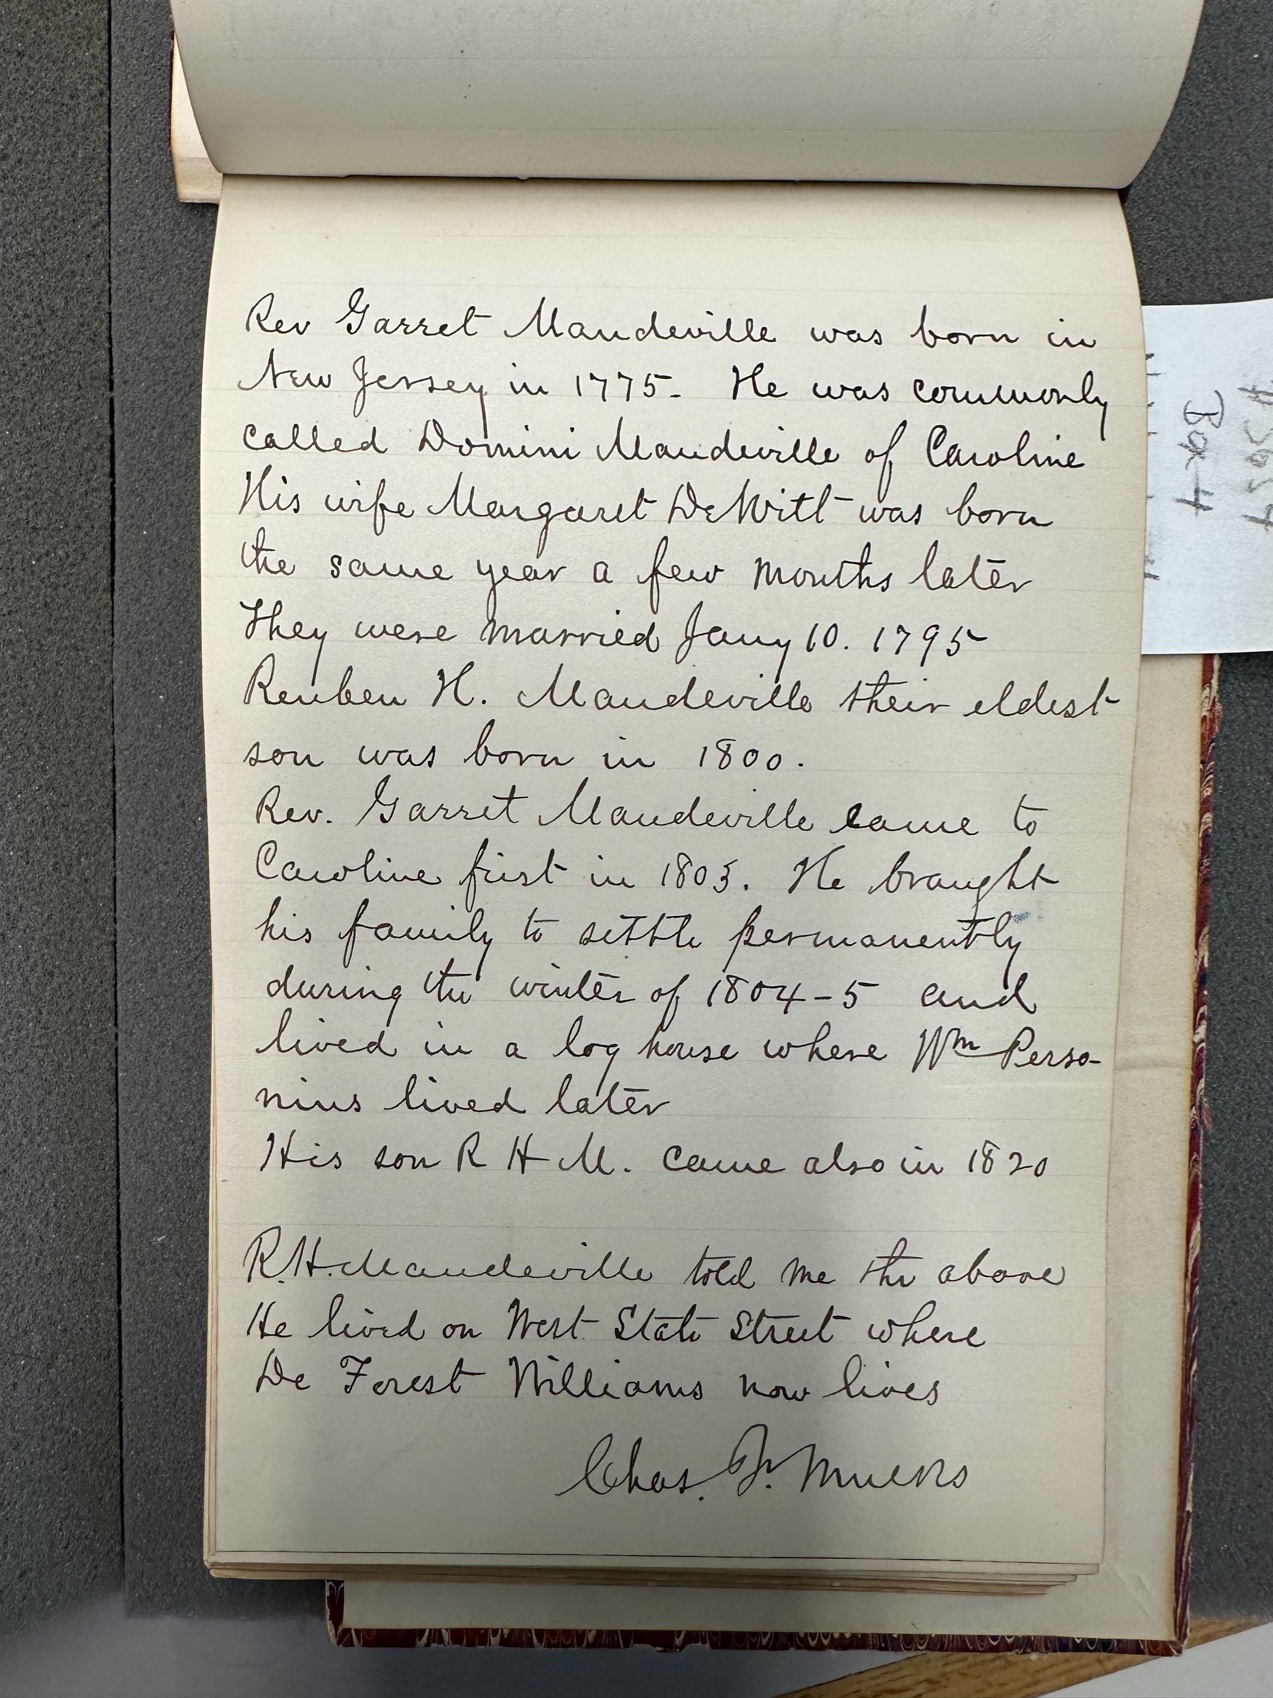 Rev Garret Mandeville was born in
New Jersey in 1775. He was commonly
called Domini Mandeville of Caroline
His wife Margaret DeWitt was born
the same year a few months later
They were married Jany 10. 1795
Reuben H. Mandeville their eldest
son was born in 1800.
Rev. Garret Mandeville came to
Caroline first in 1803. He braught
his family to settle permanently
during the winter of 1804-5 and
lived in a log house where Wm Perso-
nius lived later
His son R H M. came also in 1820
R.H. Mandeville told me the above
He lived on West State Street where
De Forest Williams now lives
Chas. F. Mulks
Box 4